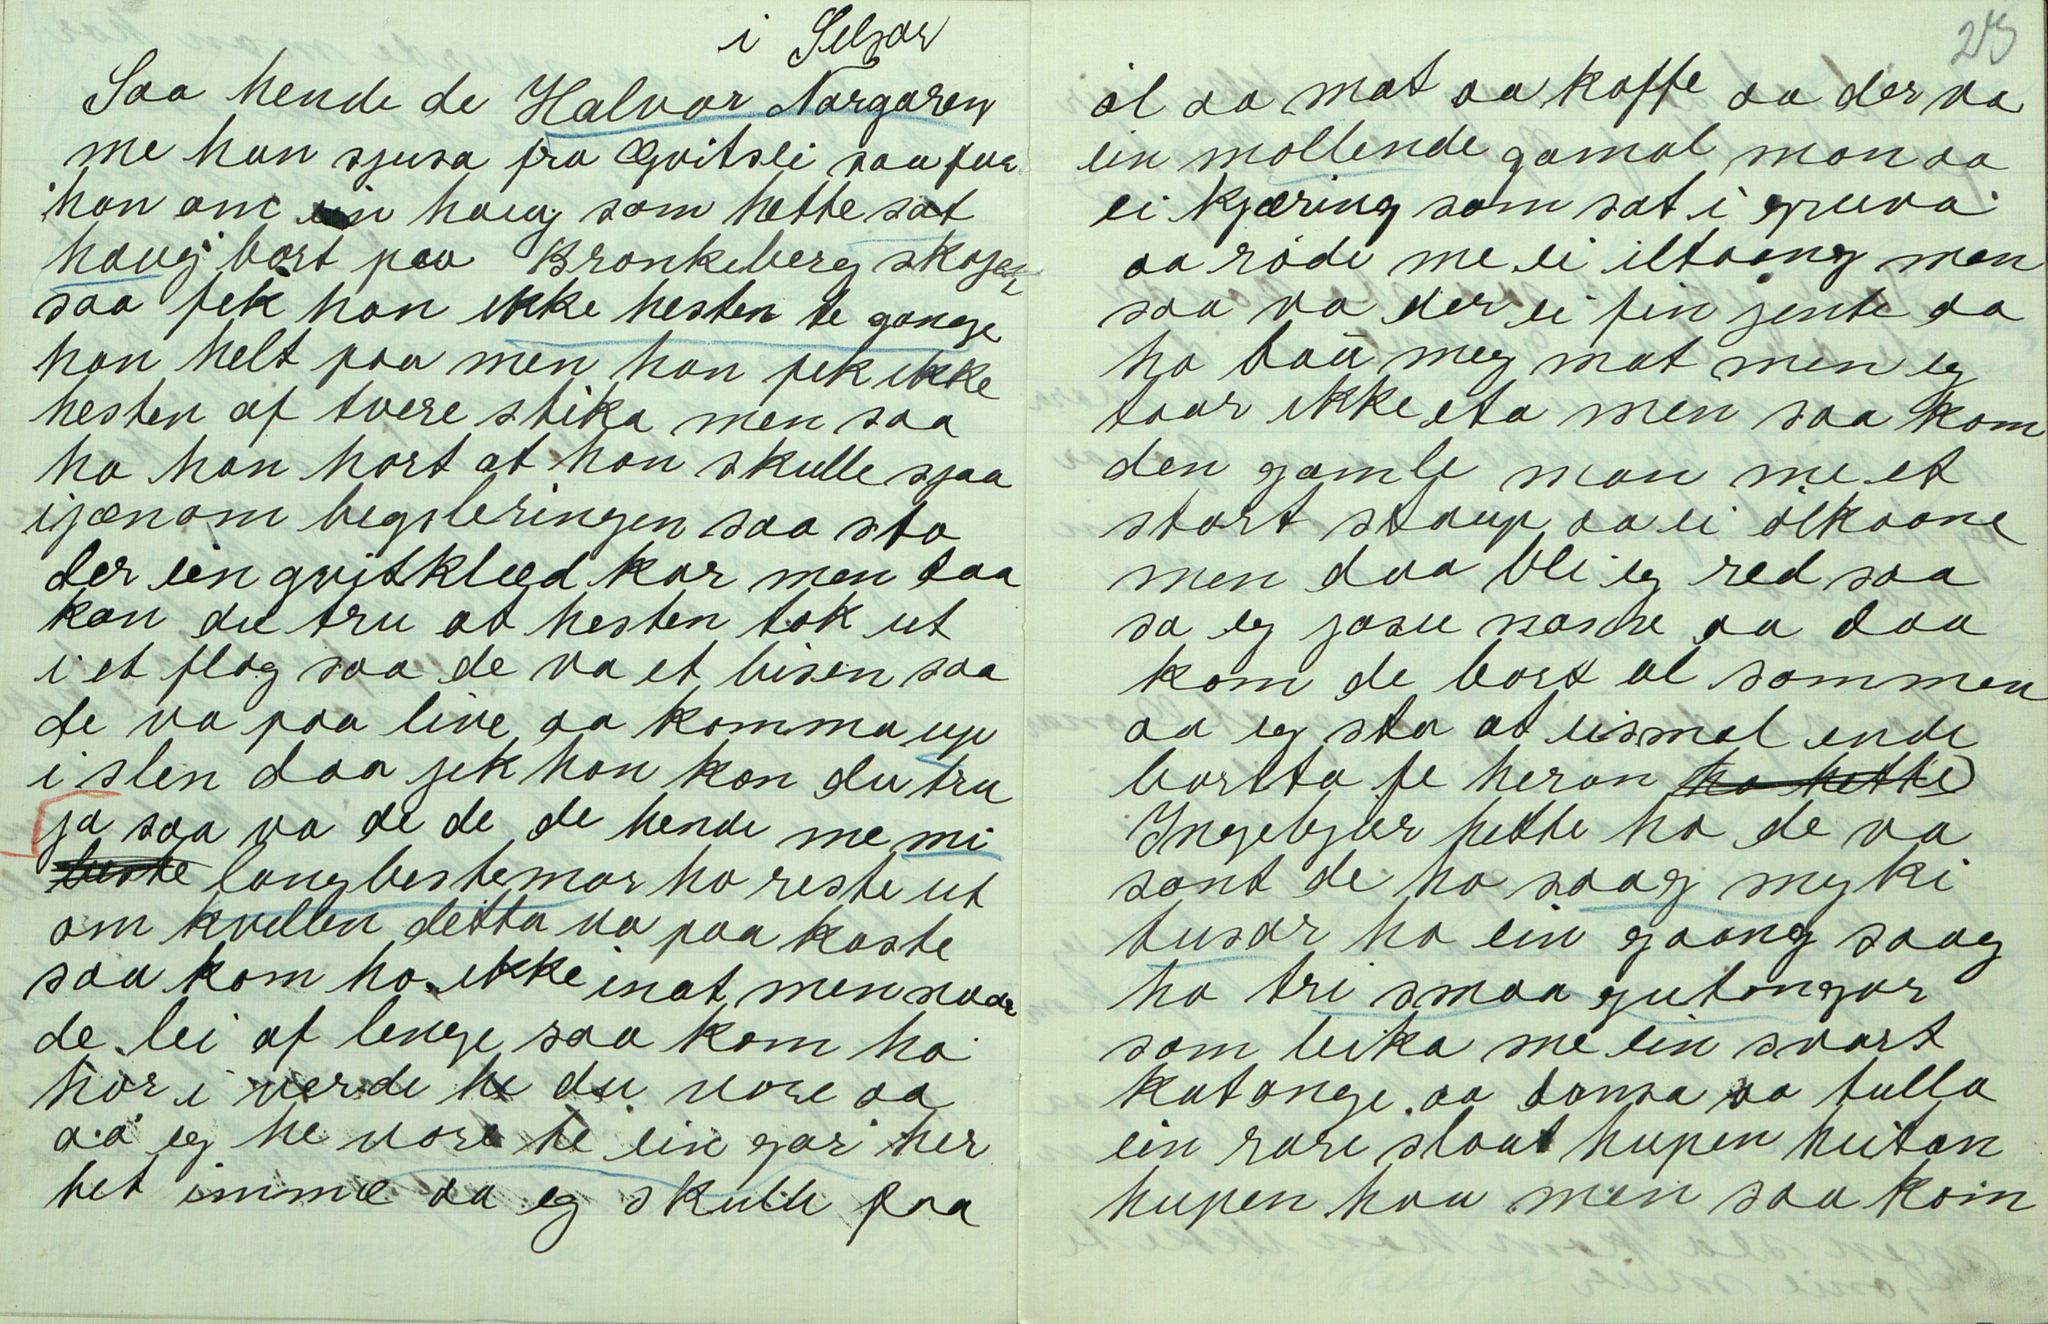 i Seljor
Saa hende de Halvor Norgaren
me han sjusa fra Qvitsei saa for
han om ein haug som hette sat
haug bort paa Bronkeberg skogen
saa fek han ikke hesten te gange
han helt paa men han fek ikke
hesten af tvere stika men saa
ha han hort at han skulle sjaa
ijænom begsleringen saa sto
der ein qvitklæd kar men daa
kan du tru at hesten tok ut
i et flog saa de va et bisen saa
de va paa live aa komma up
i slen daa jek han kan du tru
ja saa va de de de hende me mi
beste langbestemor ho reste ut
om kvellen detta va paa kaste
saa kom ho ikke inat men naar
de lei af lenge saa kom ho
hor i verde he du vore aa
aa eg he vore te ein gar her
bet imme aa eg skulle faa
28
øl aa mat aa kaffe aa der va
ein mollende gamal man aa
ei kjæring som sat i gruva
aa røde me ei iltaang men
saa va der ei fin jente aa
ho baū meg mat men eg
toar ikke eta men saa kom
den gamle man me et
stort staup aa ei ølkaane
men daa blei eg red saa
sa eg jasu nasne aa daa
kom de bort al sammen
aa eg sto at eismal ende
bortta fe heran ho hette
Ingebjør hette ho de va
sant de ho saag myki
tusar ho ein gaang saag
ho tri smaa gutongar
som leika me ein svart
katonge aa dansa aa tulla
ein rare slaat hupen heitan
hupen haa men saa kom